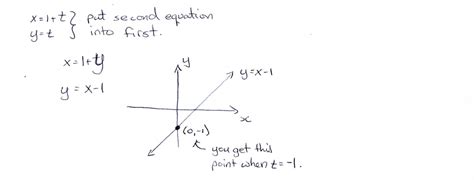 x=1+t } put second equation
y=t } into first.
x=1+y
y=x-1
y
y=x-1
x
(0,-1)
you get this
point when t=-1.